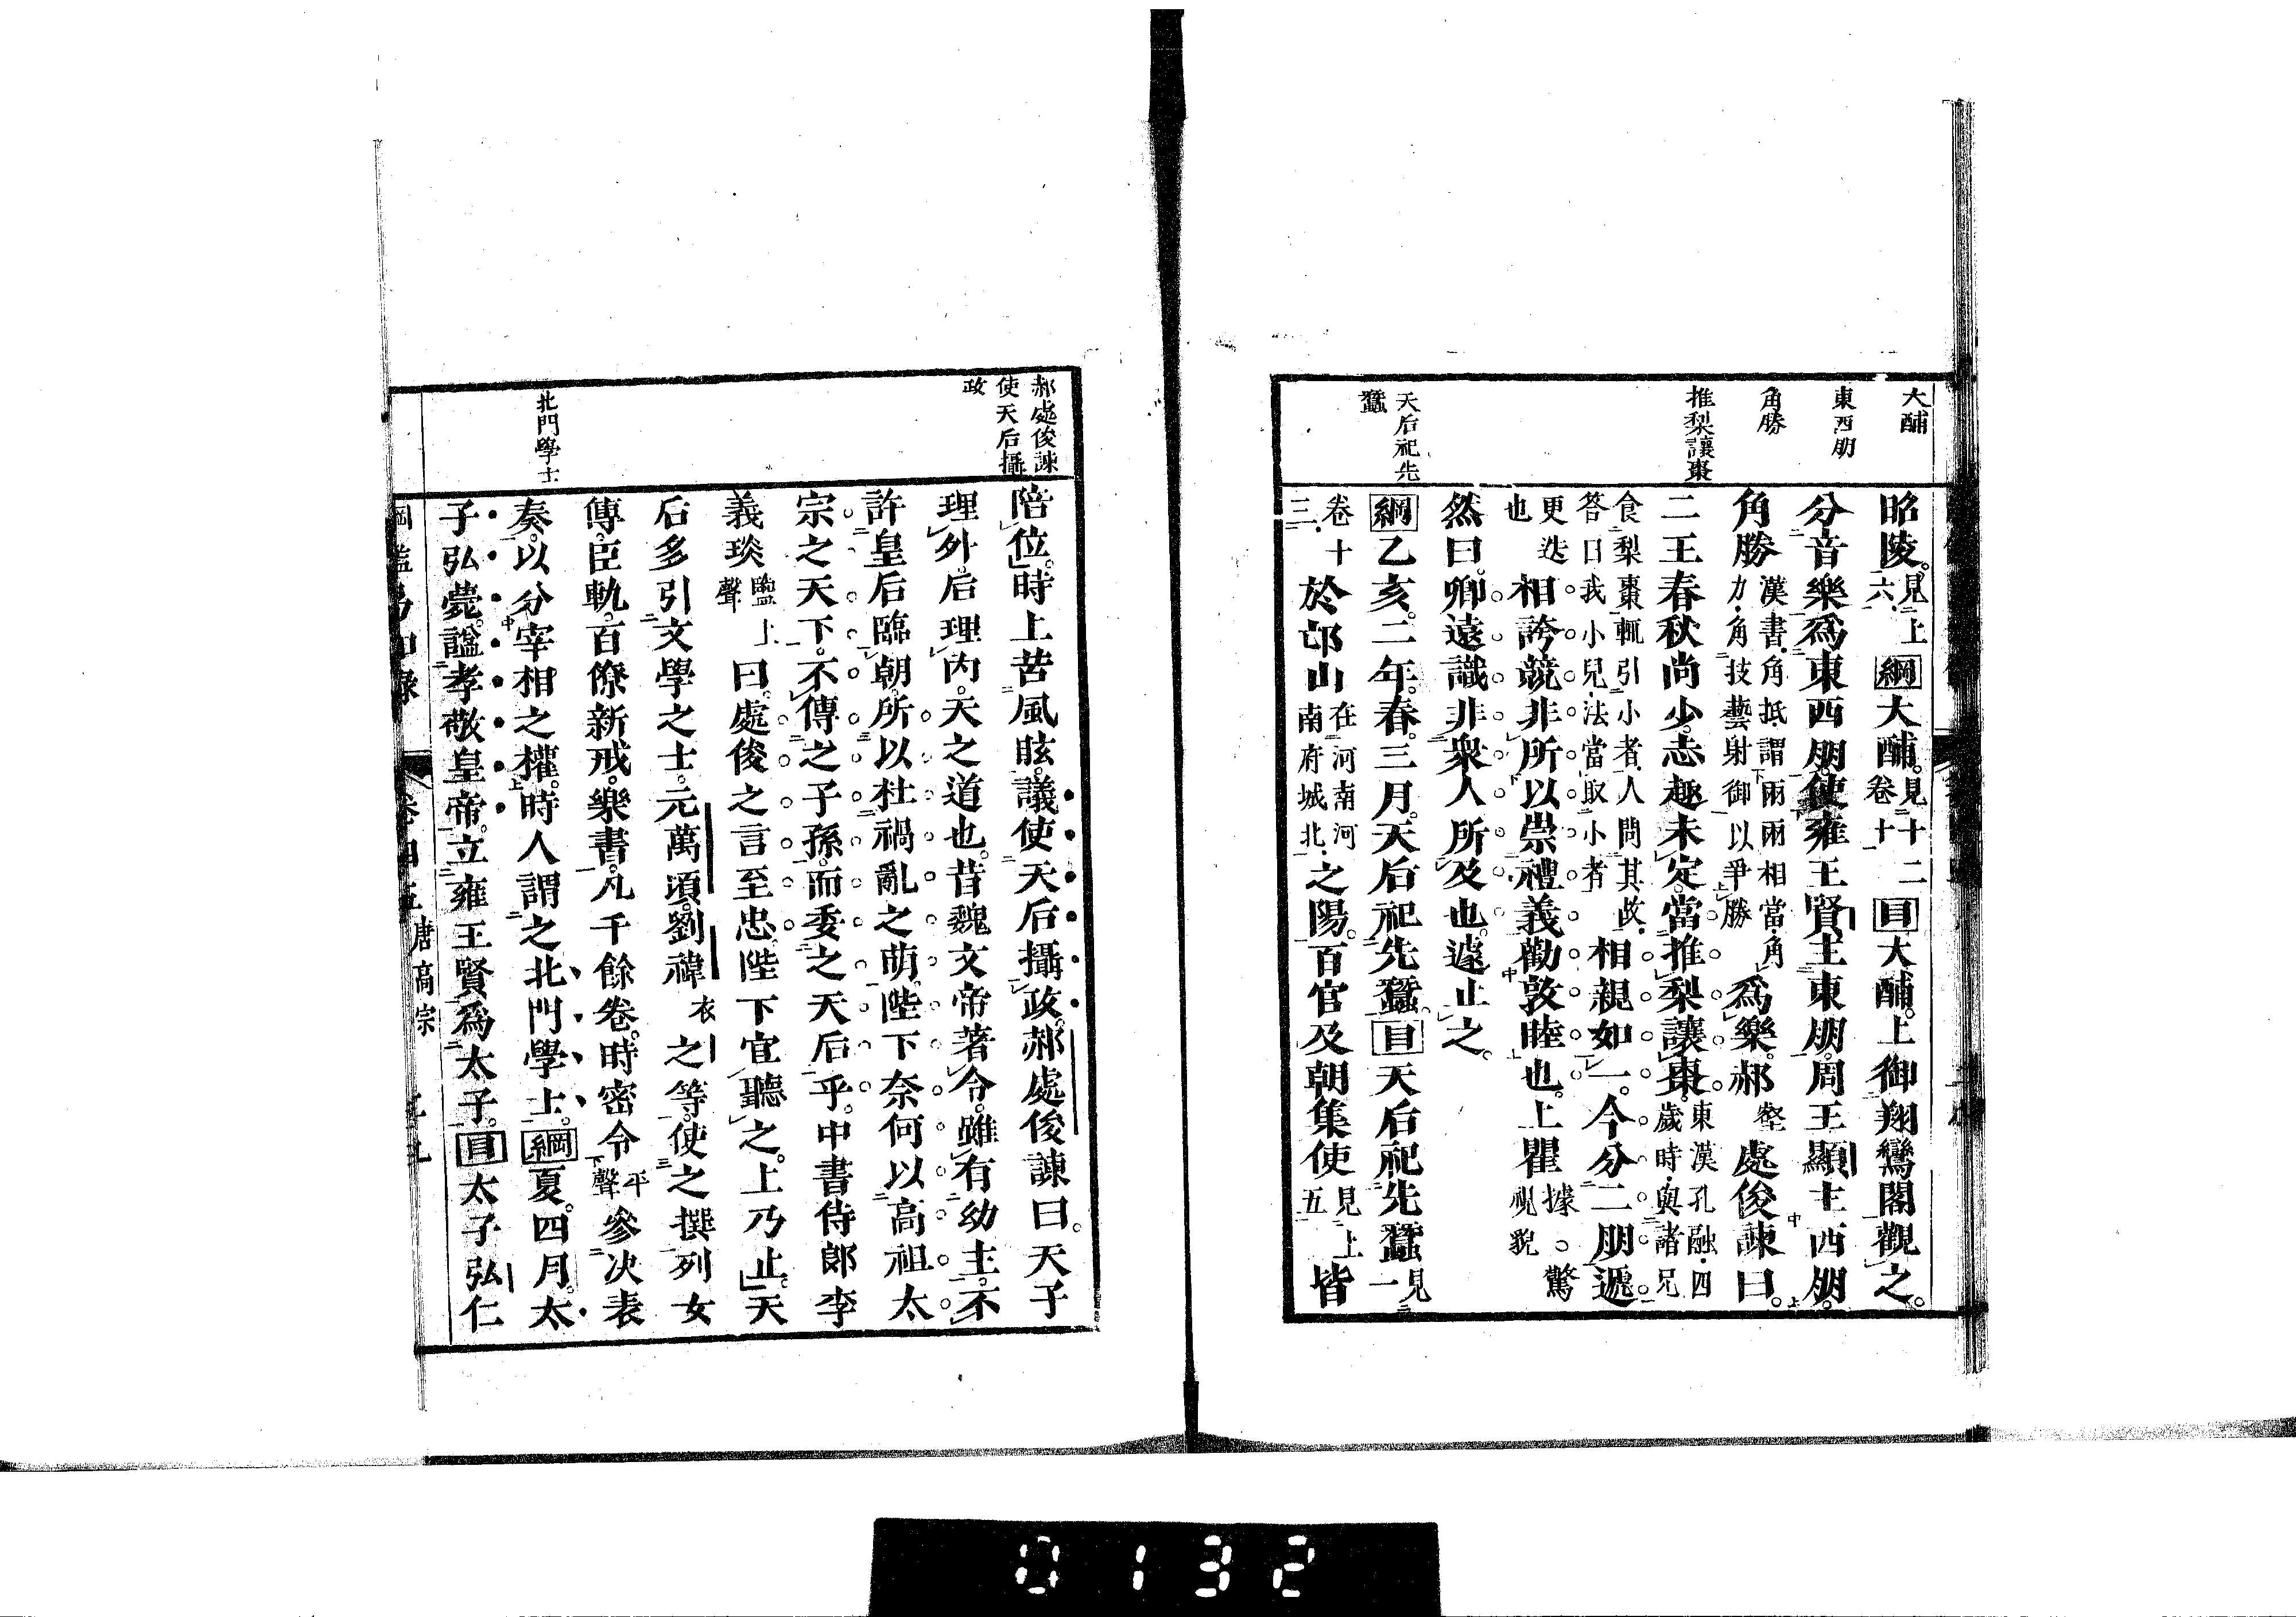 大酺
東西朋
角勝
推梨讓棗
天后祀先
蠶
昭陵。見上六 綱大酺。見十二卷十一 目大酺。上御翔鸞閣觀之。
分音樂爲東西朋。使雍王賢主東朋。周王顯主西朋。
角勝漢書角抵謂兩兩相當角力角技藝射御以爭勝爲樂。郝壑處俊諫曰。
二王春秋尚少。志趣未定。當推梨讓棗。東漢孔融四歲時與諸兄
食梨棗輒引小者人問其故答曰我小兒法當取小者相親如一。今分二朋。遞
更迭也相誇競。非所以崇禮義勸敦睦也。上瞿據。驚視貌
然曰。卿遠識。非衆人所及也。遽止之。
綱乙亥。二年。春。三月。天后祀先蠶。目天后祀先蠶見一
卷十三於邙山在河南河南府城北之陽。百官及朝集使見上五皆
郝處俊諫
使天后攝
政
北門學士
陪位。時上苦風眩。議使天后攝政。郝處俊諫曰。天子
理外。后理內。天之道也。昔魏文帝著令。雖有幼主。不
許皇后臨朝。所以杜禍亂之萌。陛下奈何以高祖太
宗之天下。不傳之子孫。而委之天后乎。中書侍郎李
義琰鹽上聲曰。處俊之言至忠。陛下宜聽之。上乃止。天
后多引文學之士。元萬頃。劉禕衣之等。使之撰列女
傳。臣軌。百僚新戒。樂書。凡千餘卷。時密令平聲參決表
奏。以分宰相之權。時人謂之北門學士。綱夏。四月。太
子弘薨。諡孝敬皇帝。立雍王賢爲太子。目太子弘仁
綱鑑易知錄 卷四五 唐高宗
0132